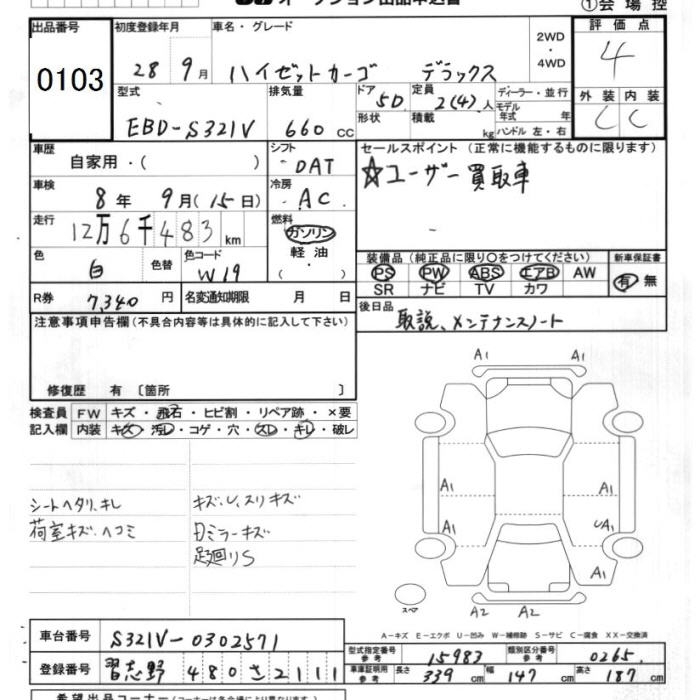 オークション出品申込書
①会場控
出品番号
0103
初度登録年月
28 9月
車名・グレード
ハイゼットカーゴ デラックス
2WD
・
4WD
評価点
4
型式
EBD-S321V
排気量
660 cc
ドア
5D
形状
定員
2(4)人
積載
kg
ディーラー・並行
モデル年式 年
ハンドル 左・右
外装 内装
C C
車歴
自家用・( )
シフト
DAT
セールスポイント (正常に機能するものに限ります)
☆ユーザー買取車
車検
8年 9月(15日)
冷房
AC
走行
12万6千483 km
燃料
ガソリン
軽油
( )
色
白
色替
色コード
W19
装備品 (純正品に限り○をつけてください)
PS PW ABS エアB AW
SR ナビ TV カワ
新車保証書
有 無
R券
7,340 円
名変通知期限 月 日
後日品
取説、メンテナンスノート
注意事項申告欄 (不具合内容等は具体的に記入して下さい)
修復歴 有 〔箇所 〕
検査員記入欄
FW キズ・飛石・ヒビ割・リペア跡・×要
内装 キズ・汚レ・コゲ・穴・スレ・キレ・破レ
シートヘタリ、キレ
荷室キズ、ヘコミ
キズ、U、スリキズ
Dミラーキズ
足廻りS
A1 A1
A1 A1
A1 UA1
A1 A1
A2 A2
スペア
A-キズ E-エクボ U-凹み W-補修跡 S-サビ C-腐食 XX-交換済
車台番号
S321V-0302571
登録番号
習志野 480さ2111
型式指定番号 参考
15983
類別区分番号 参考
0265
車庫証明用 参考
長さ 339 cm 幅 147 cm 高さ 187 cm
希望出品コーナー